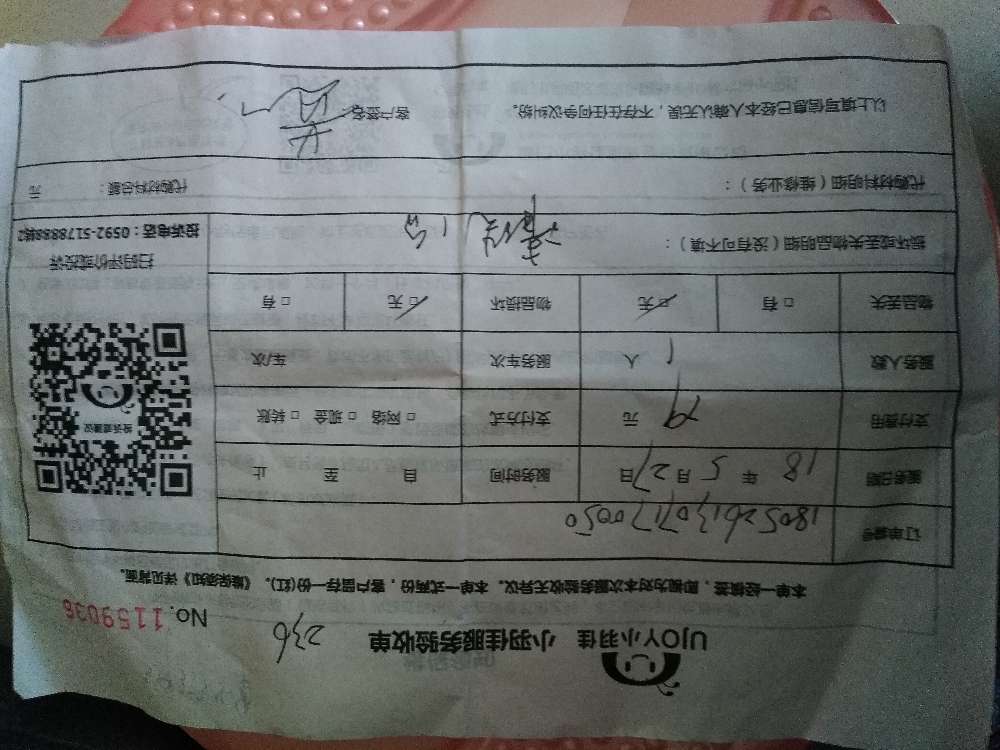 UJOY小羽佳 小羽佳服务验收单 236
No.1159036
本单一经核签，即视为对本次服务验收无异议。本单一式两份，客户留存一份(红)。《雇佣须知》详见背面。
订单编号 18052613071700050
服务日期 18 年 5 月 27 日 服务时间 自 至 止
支付费用 79 元 支付方式 □网络 □现金 □转账
服务人数 1 人 服务车次 车/次
物品丢失 □有 □无 物品损坏 □无 □有
投诉或建议
扫码评价或投诉
投诉电话：0592-5178888转2
损坏或丢失物品明细（没有可不填）：
代购材料明细（维修业务）： 代购材料总额： 元
以上填写信息已经本人确认无误，不存在任何争议纠纷。 客户签名